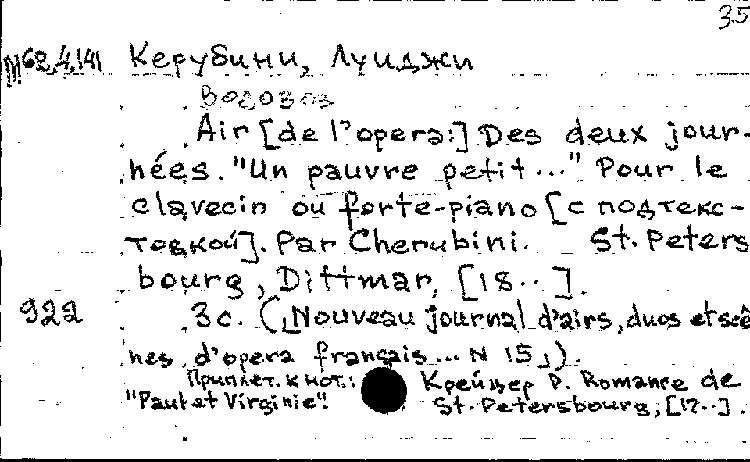 35
М62,4,141 Керубини, Луиджи
Водовоз
Air [de l'opera:] Des deux jour-
nées. "Un pauvre petit..." Pour le
clavecin ou forte-piano [с подтекс-
товкой]. Par Cherubini. St. Peters
bourg, Dittmar, [18..].
922 3с. (Nouveau journal d'airs, duos et scè
nes d'opera français... N 15).
Приплет. к нот.: Крейцер Р. Romance de
"Paul et Virginie". St. Petersbourg, [17..].